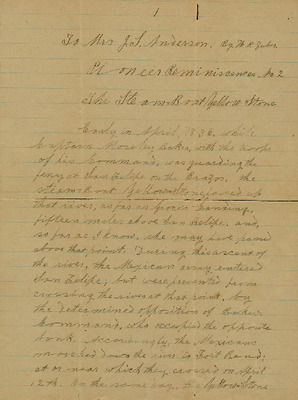 1
To Mrs J. S. Anderson, By W. P. Zuber
Pioneer Reminiscences No. 2
The Steam-Boat Yellow Stone
Early in April, 1836, while
Captain Moseley Baker, with the troops
of his Command, was guarding the
ferry at San Felipe on the Brazos, the
steam boat Yellow Stone passed up
that river, as far as Groce's Landing,
fifteen miles above San Felipe, and,
so far as I know, she may have passed
above that point. During this ascent of
the river, the Mexican army entered
San Felipe; but were prevented from
crossing the river at that point, by
the determined opposition of Baker's
Command, who occupied the opposite
bank. Accordingly, the Mexicans
marched down the river to Fort Bend;
at or near which they crossed on April
12th. On the same day, the Yellow Stone